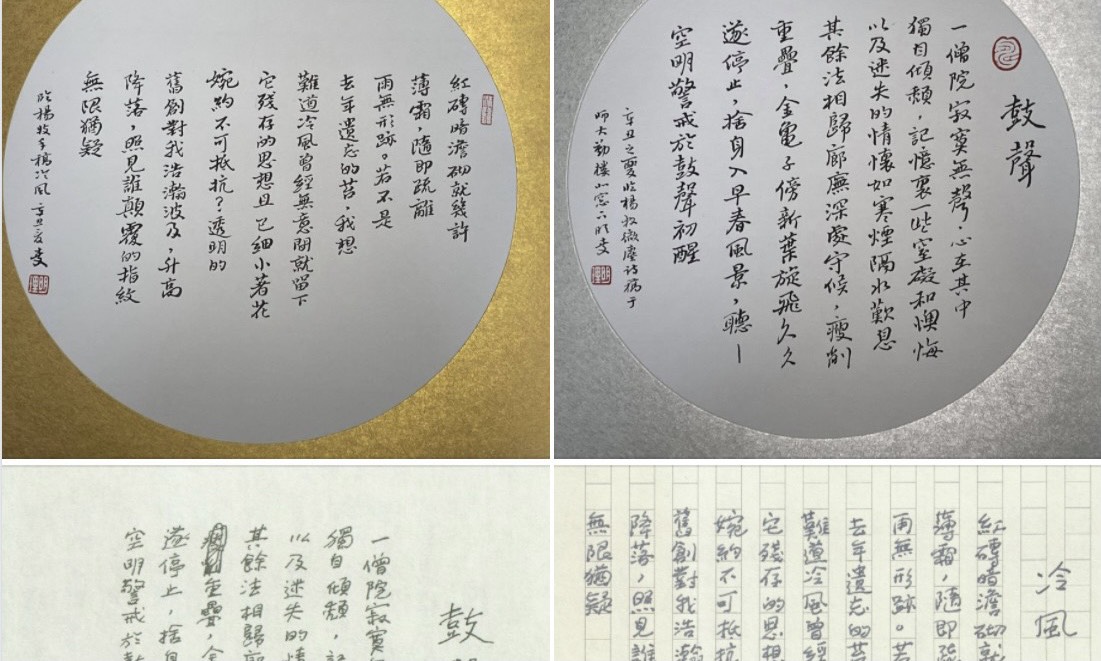 紅磚暗澹砌就幾許
薄霜,隨即疏離
雨無形跡。若不是
去年遺忘的苔,我想
難道冷風曾經無意間就留下
它殘存的思想且已細小著花
婉約不可抵抗?透明的
舊創對我浩瀚波及,升高
降落,照見誰顛覆的指紋
無限猶疑
臨楊牧手稿冷風 辛丑夏
鼓聲
一僧院寂寞無聲,心在其中
獨自傾頹,記憶裏一些窒礙和懊悔
以及迷失的情懷如寒煙隔水歎息
其餘法相歸廊廡深處守候,瘦削
重疊,金龜子傍新葉旋飛久久
遂停止,捨身入早春風景,聽—
空明警戒於鼓聲初醒
辛丑之夏臨楊牧微塵詩稿于
師大勤樓小窓
鼓
一僧院寂寞
獨自傾頹,記
以及迷失的情
其餘法相歸廊
重疊,金
遂停止,捨身
空明警戒於鼓
冷風
紅磚暗澹砌就
薄霜,隨即疏
雨無形跡。若
去年遺忘的苔
難道冷風曾經
它殘存的思想
婉約不可抵抗
舊創對我浩瀚
降落,照見誰
無限猶疑